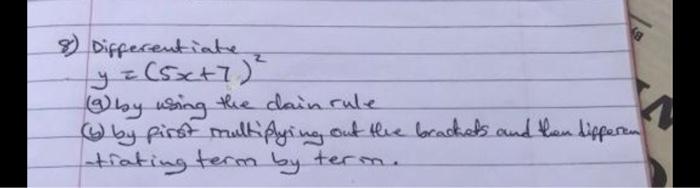 8) Differentiate
y = (5x+7)²
(a) by using the chain rule
(b) by first multiplying out the brackets and then differen
-tiating term by term.